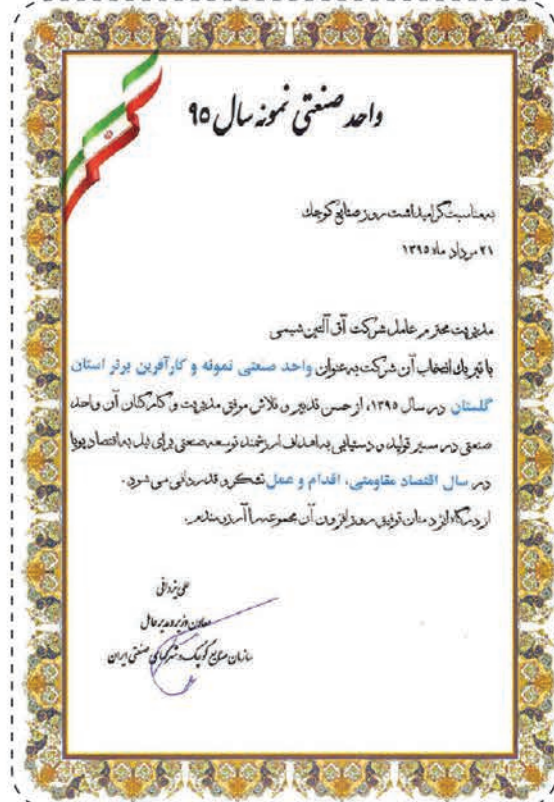 واحد صنعتی نمونه سال ۹۵
بمناسبت گرامیداشت روز صنایع کوچک
۲۱ مرداد ماه ۱۳۹۵
مدیریت محترم عامل شرکت آق آلتین شیمی
با تبریک انتخاب آن شرکت به عنوان واحد صنعتی نمونه و کارآفرین برتر استان
گلستان در سال ۱۳۹۵، از حسن تدبیر و تلاش موفق مدیریت و کارکنان آن واحد
صنعتی در مسیر تولید و دستیابی به اهداف ارزشمند توسعه صنعتی برای نیل به اقتصاد پویا
در سال اقتصاد مقاومتی، اقدام و عمل تشکر و قدردانی می شود.
از درگاه ایزد منان توفیق روز افزون آن مجموعه را آرزومندم.
علی یزدانی
معاون وزیر و مدیر عامل
سازمان صنایع کوچک و شهرکهای صنعتی ایران